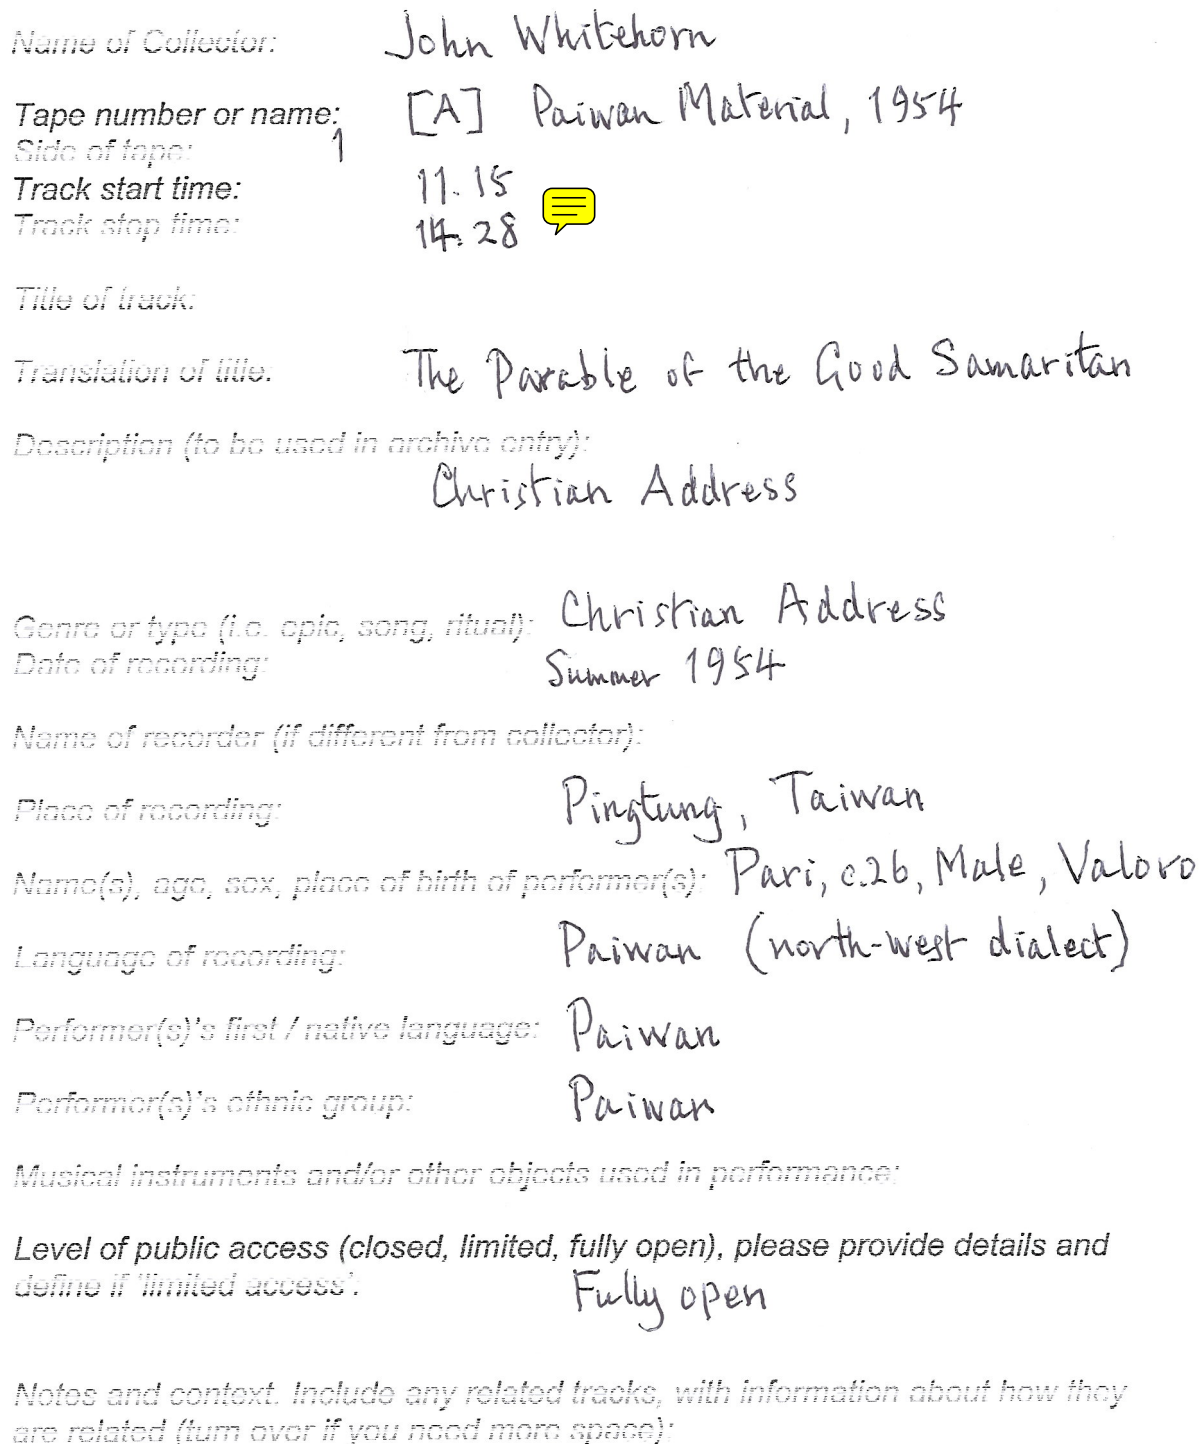 Name of Collector: John Whitehorn
Tape number or name: [A] Paiwan Material, 1954
Side of tape: 1
Track start time: 11.15
Track stop time: 14.28
Title of track:
Translation of title: The Parable of the Good Samaritan
Description (to be used in archive entry):
Christian Address
Genre or type (i.e. epic, song, ritual): Christian Address
Date of recording: Summer 1954
Name of recorder (if different from collector):
Place of recording: Pingtung, Taiwan
Name(s), age, sex, place of birth of performer(s): Pari, c.26, Male, Valoro
Language of recording: Paiwan (north-west dialect)
Performer(s)'s first / native language: Paiwan
Performer(s)'s ethnic group: Paiwan
Musical instruments and/or other objects used in performance:
Level of public access (closed, limited, fully open), please provide details and
define if 'limited access': Fully open
Notes and context. Include any related tracks, with information about how they
are related (turn over if you need more space):